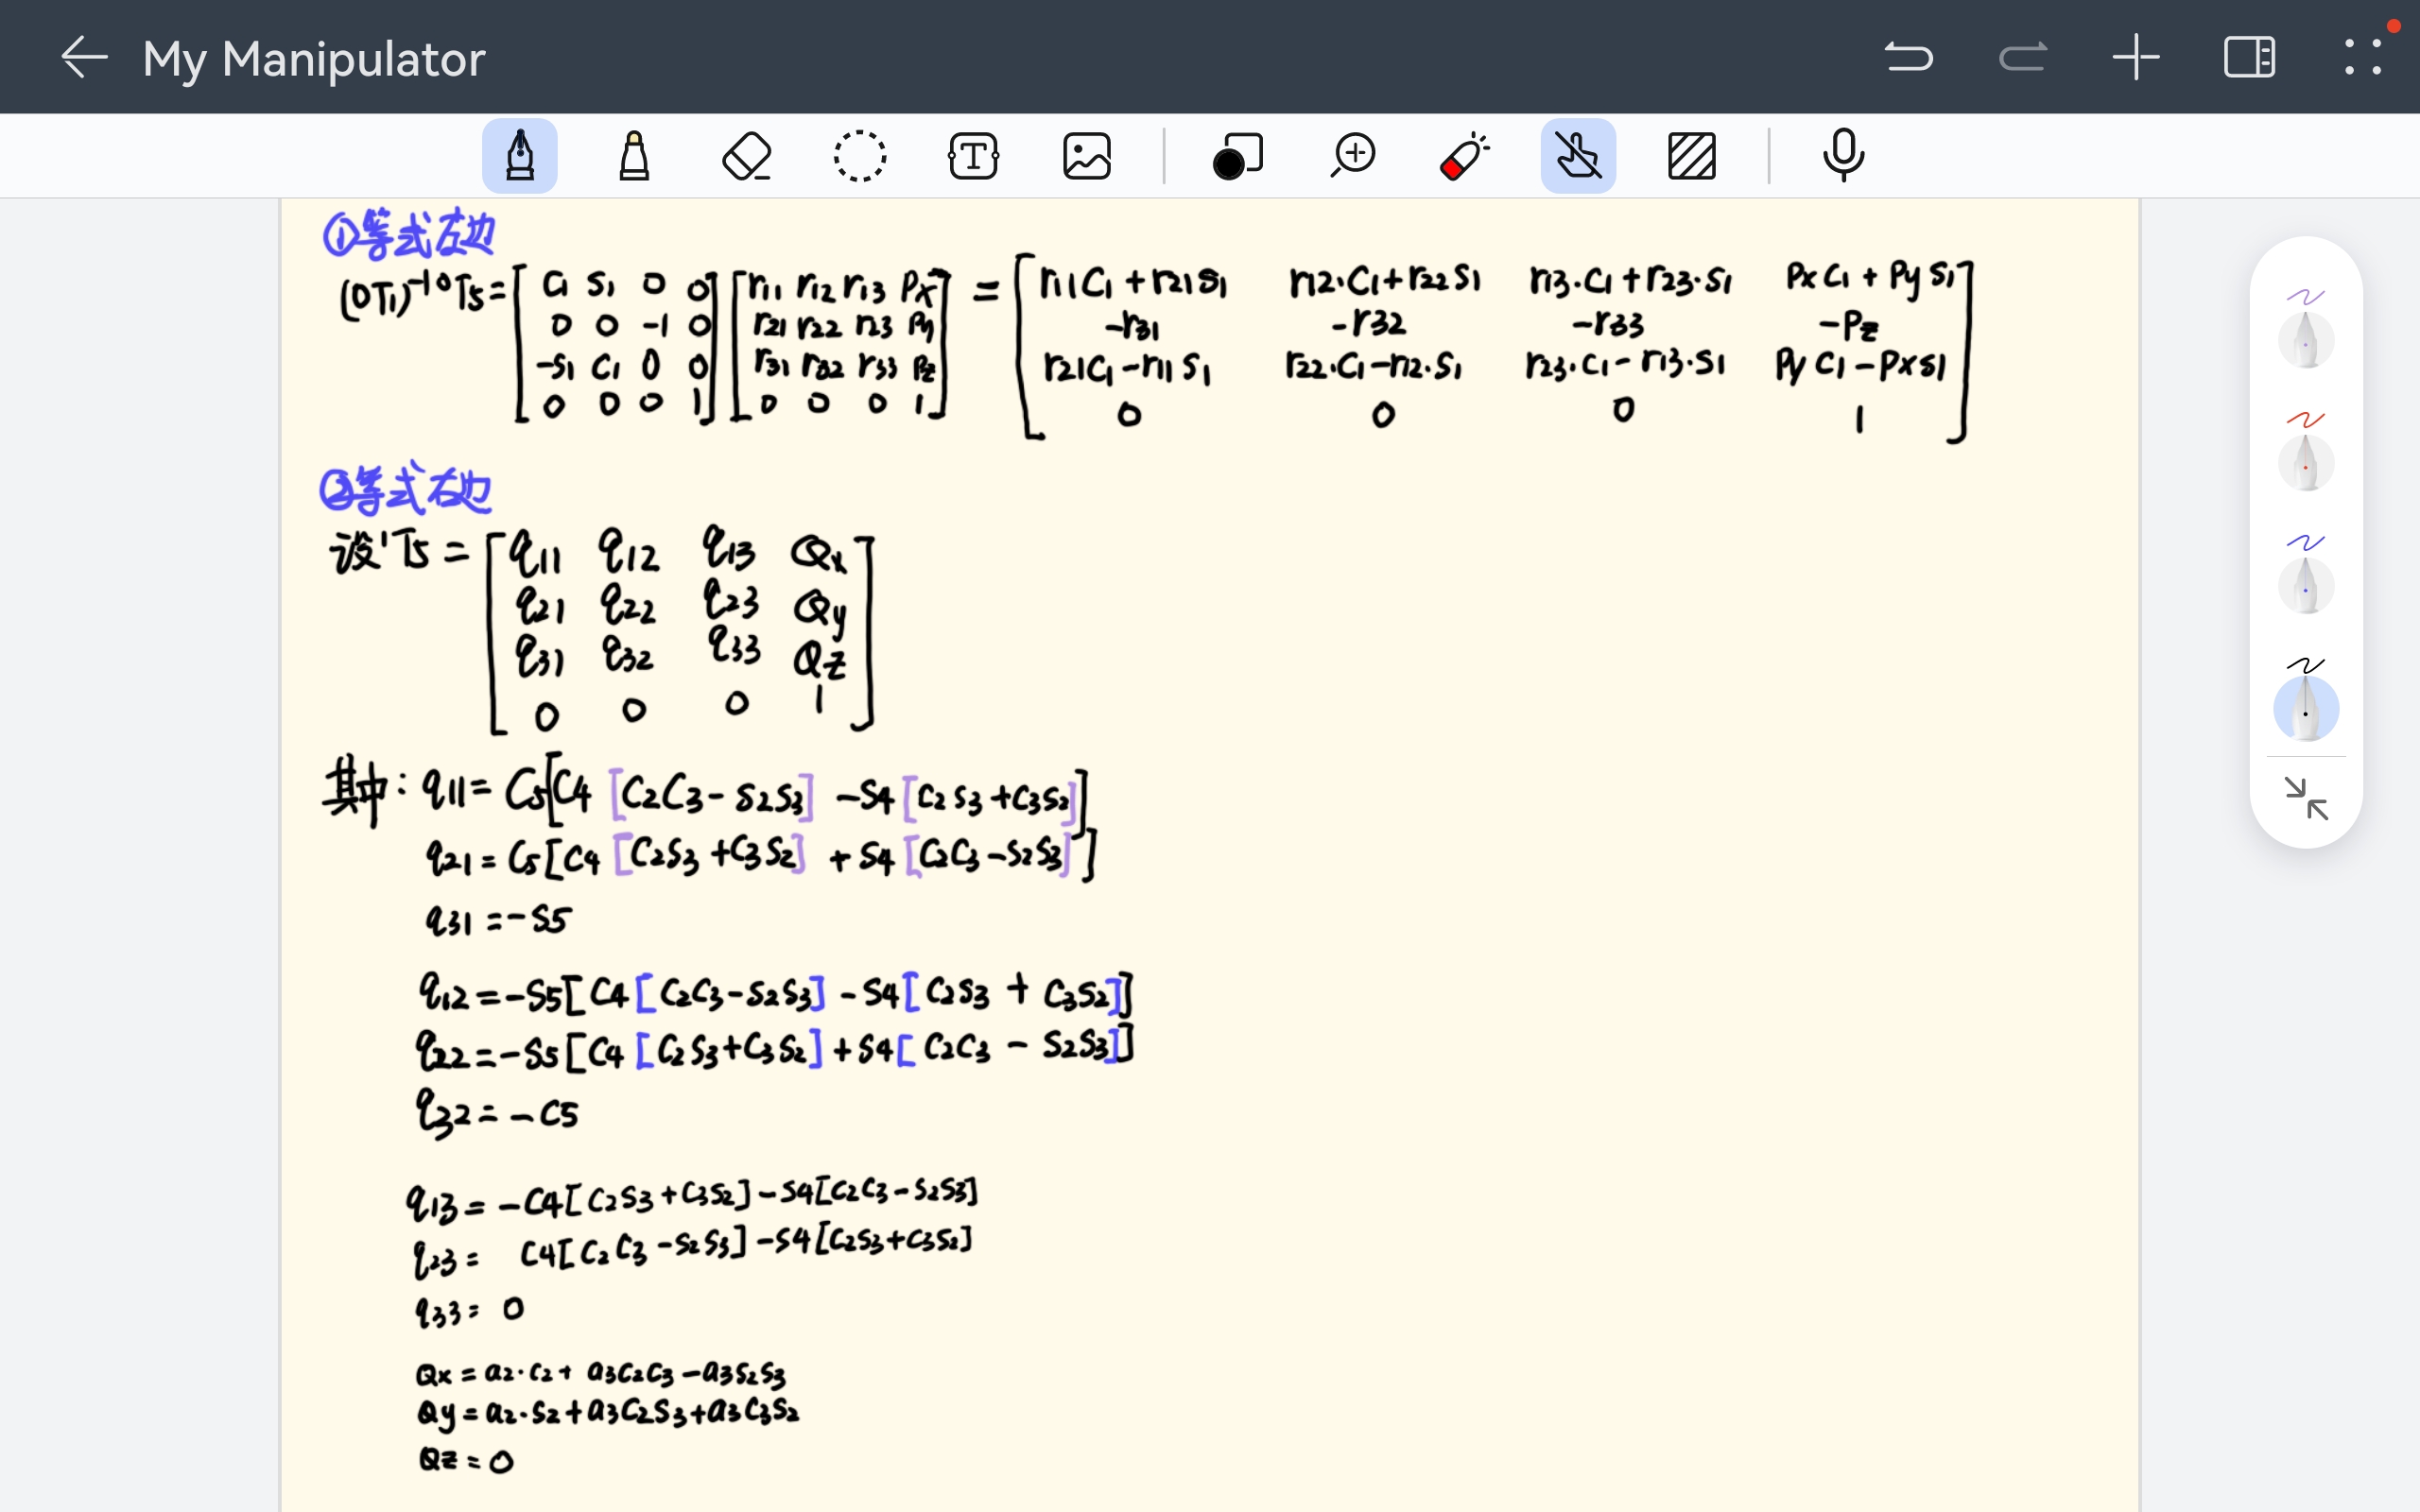 My Manipulator
①等式左边
(0T1)⁻¹ ⁰T5 = [ C1 S1 0 0 ] [ r11 r12 r13 Px ] = [ r11C1+r21S1 r12·C1+r22S1 r13·C1+r23·S1 PxC1+PyS1 ]
[ 0 0 -1 0 ] [ r21 r22 r23 Py ] [ -r31 -r32 -r33 -Pz ]
[ -S1 C1 0 0 ] [ r31 r32 r33 Pz ] [ r21C1-r11S1 r22·C1-r12·S1 r23·C1-r13·S1 PyC1-PxS1 ]
[ 0 0 0 1 ] [ 0 0 0 1 ] [ 0 0 0 1 ]
②等式右边
设 ¹T5 = [ q11 q12 q13 Qx ]
[ q21 q22 q23 Qy ]
[ q31 q32 q33 Qz ]
[ 0 0 0 1 ]
其中: q11 = C5[C4[C2C3-S2S3] -S4[C2S3+C3S2]]
q21 = C5[C4[C2S3+C3S2] +S4[C2C3-S2S3]]
q31 = -S5
q12 = -S5[C4[C2C3-S2S3] -S4[C2S3 + C3S2]]
q22 = -S5[C4[C2S3+C3S2] +S4[C2C3 - S2S3]]
q32 = -C5
q13 = -C4[C2S3+C3S2] -S4[C2C3-S2S3]
q23 = C4[C2C3-S2S3] -S4[C2S3+C3S2]
q33 = 0
Qx = a2·C2+ a3C2C3-a3S2S3
Qy = a2·S2+a3C2S3+a3C3S2
Qz = 0